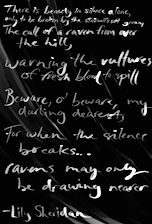 There is beauty in silence alone,
only to be broken by the
The call of a raven from over
the hill,
warning the vultures
of fresh blood to spill
Beware, o' beware, my
darling dearest,
For when the silence
breaks...
ravens may only
be drawing nearer
-Lily Sheridan